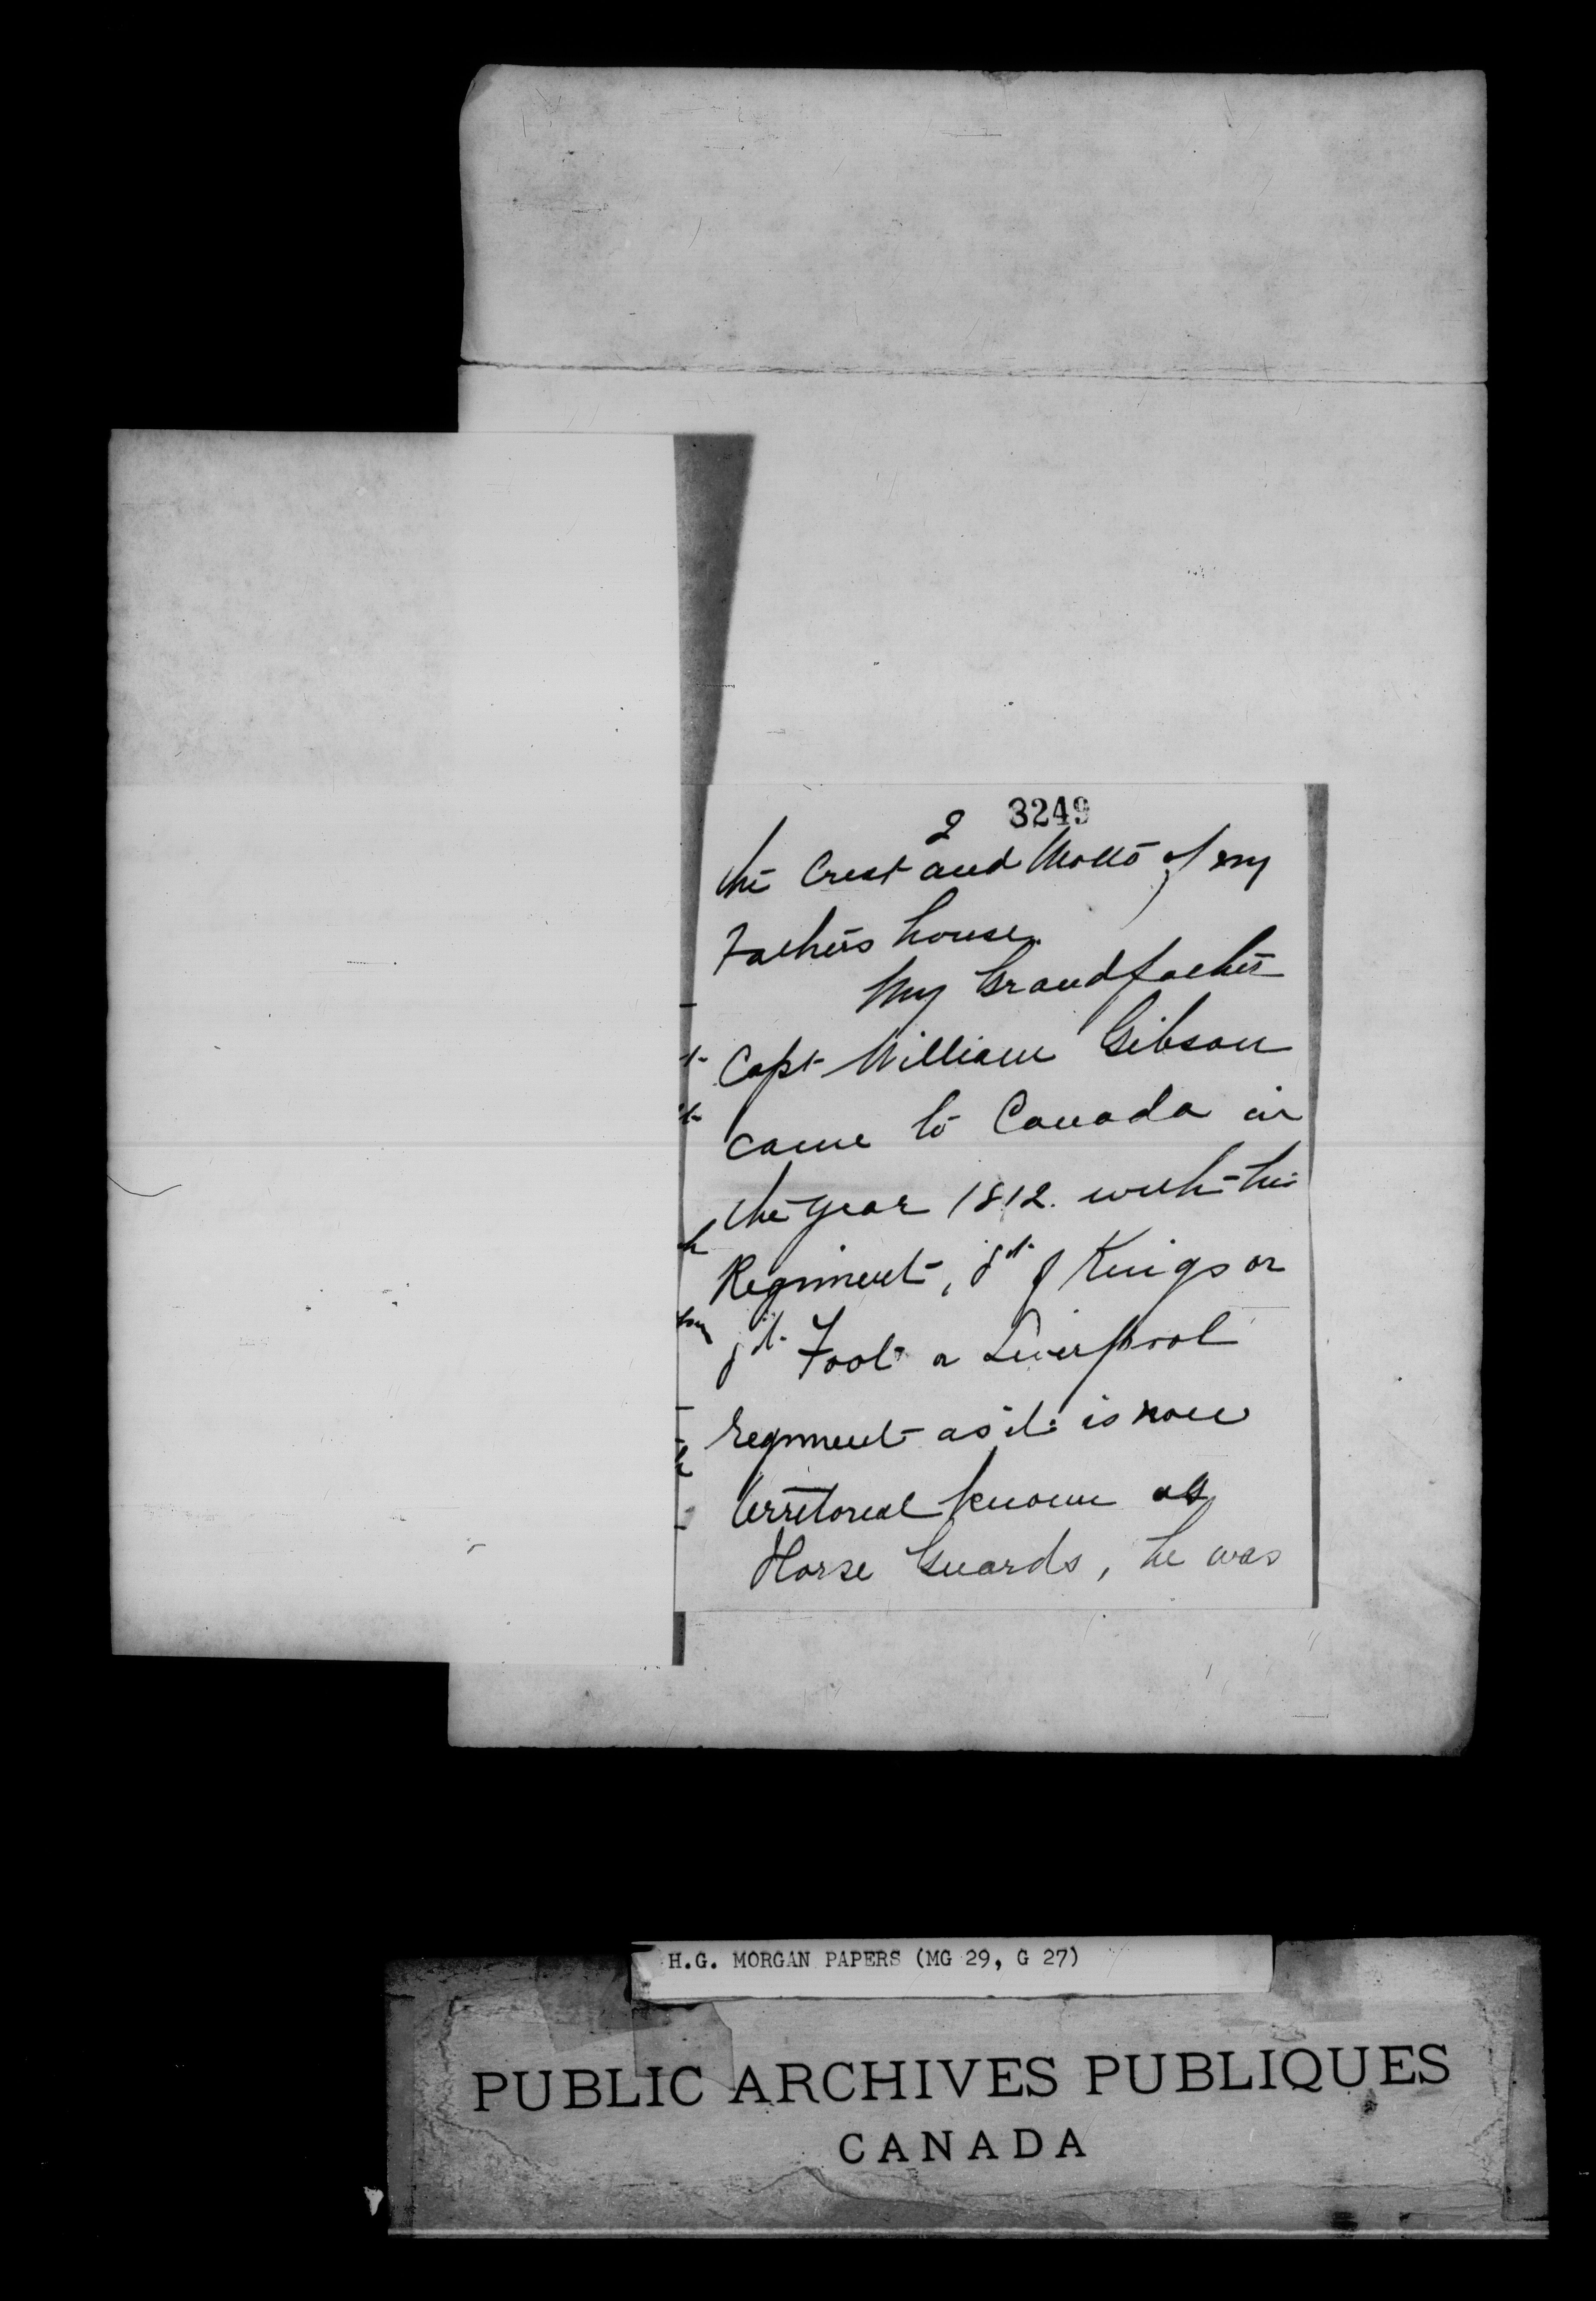 2 3249
the Crest and Motto of my
Fathers house.
My Grandfather
Capt William Gibson
came to Canada in
the year 1812. with his
Regiment, 8th of Kings or
8th Foot or Liverpool
regiment as it is now
territoreal known as
Horse Guards, he was
H.G. MORGAN PAPERS (MG 29, G 27)
PUBLIC ARCHIVES PUBLIQUES
CANADA